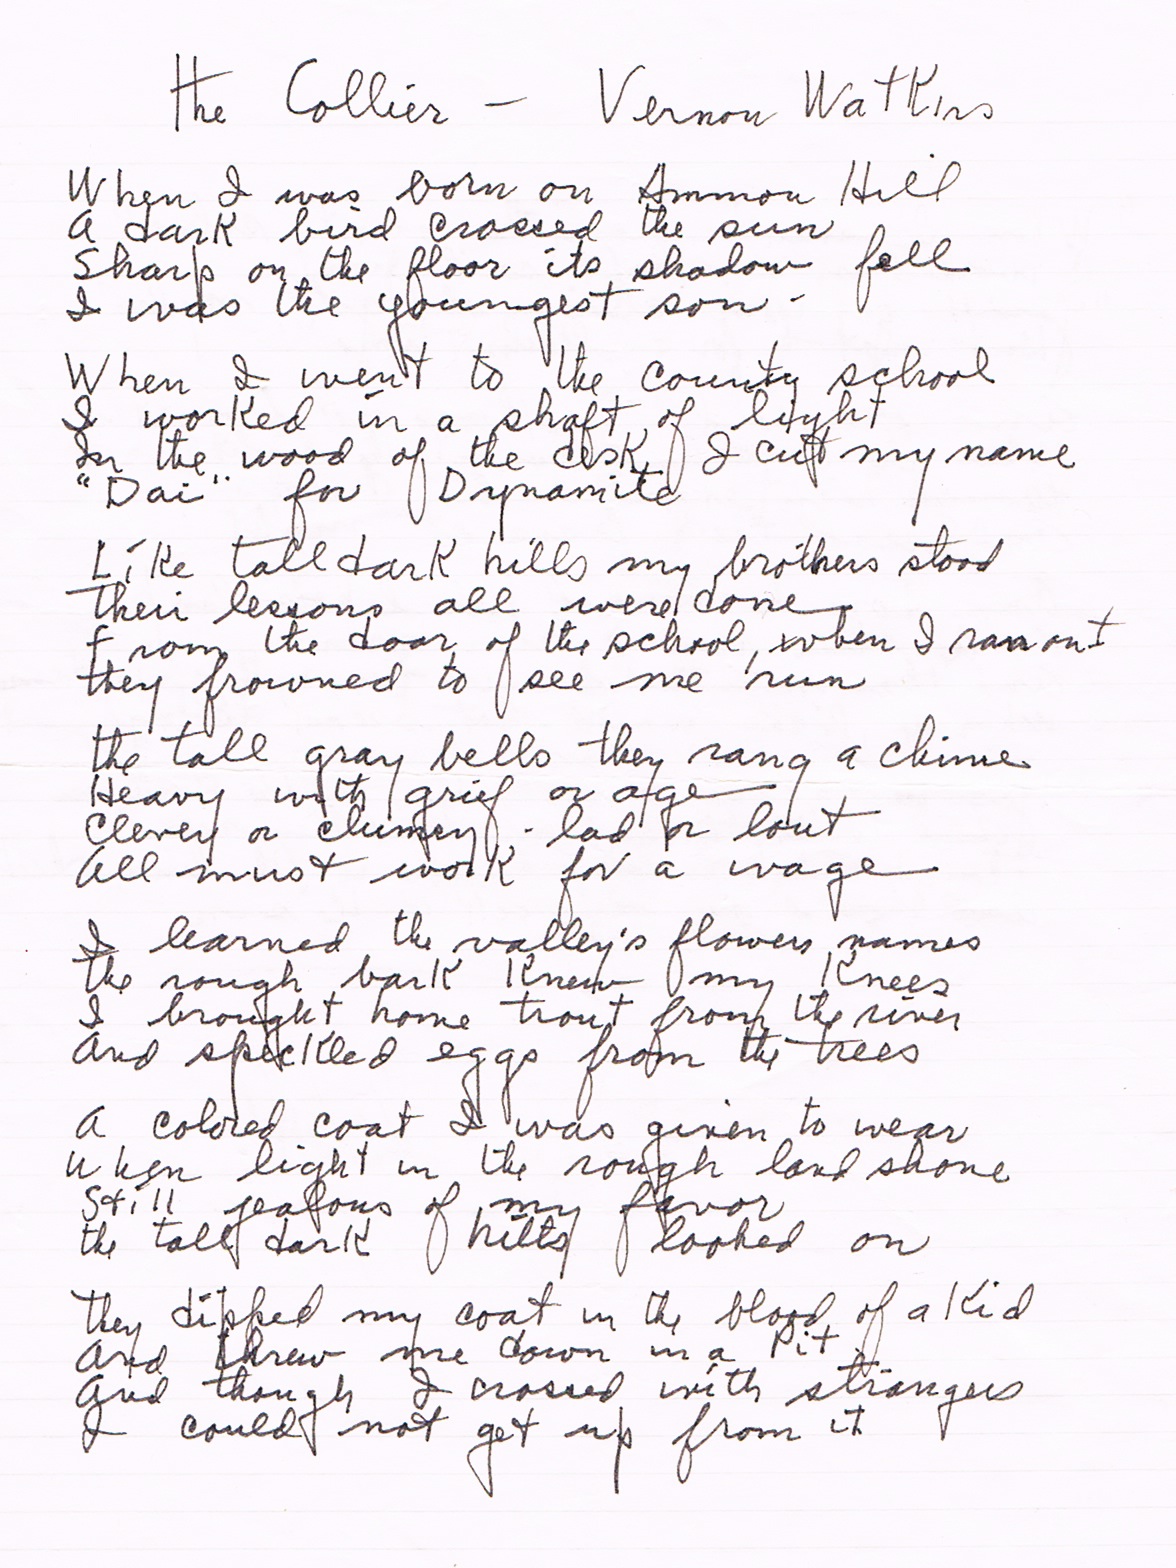 The Collier - Vernon Watkins
When I was born on Ammon Hill
A dark bird crossed the sun
Sharp on the floor its shadow fell
I was the youngest son -
When I went to the county school
I worked in a shaft of light
In the wood of the desk I cut my name
"Dai" for Dynamite
Like tall dark hills my brothers stood
Their lessons all were done
From the door of the school, when I ran out
they frowned to see me run
the tall gray bells they rang a chime
Heavy with grief or age
Clever or clumsy - lad or lout
All must work for a wage
I learned the valley's flowers names
The rough bark knew my knees
I brought home trout from the river
And speckled eggs from the trees
A colored coat I was given to wear
When light in the rough land shone
Still jealous of my favor
the tall dark hills looked on
They dipped my coat in the blood of a kid
And threw me down in a Pit
And though I crossed with strangers
I could not get up from it